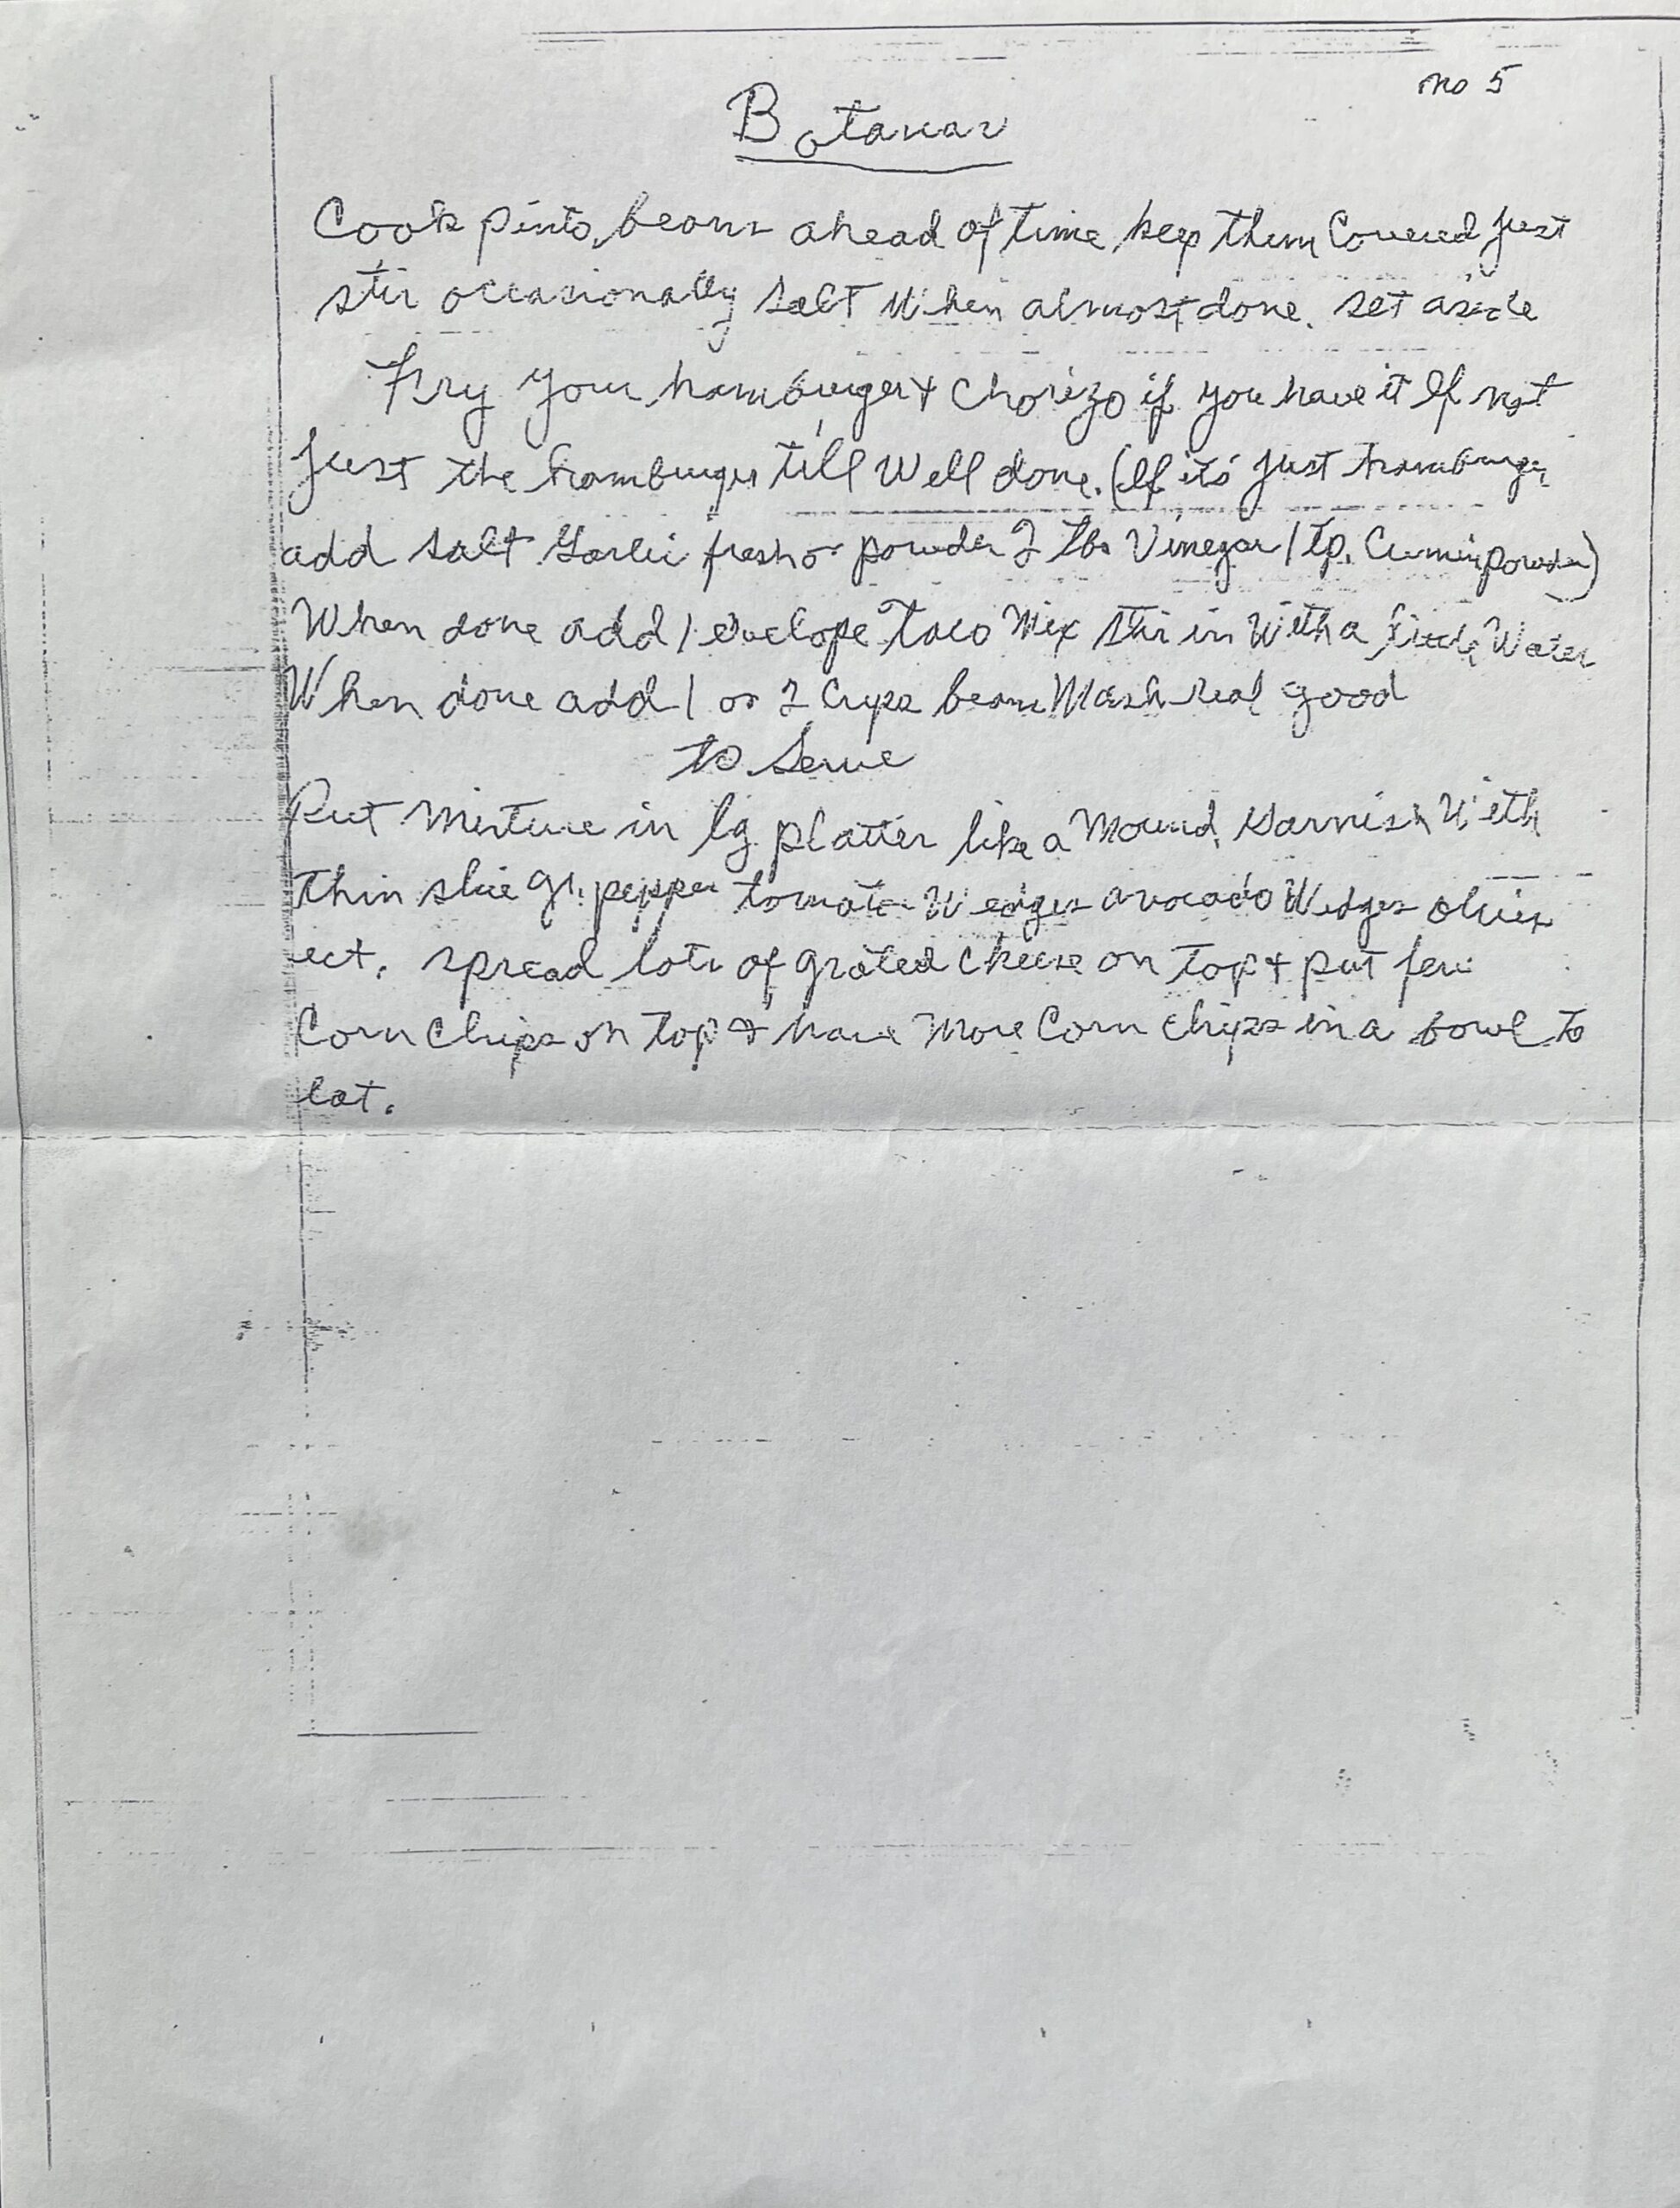 no 5
Botanas
Cook pinto beans ahead of time keep them Covered just
stir occasionally salt When almost done. set aside
Fry your hamburger & Chorizo if you have it If not
just the hamburger till Well done. (If its just hamburger
add salt Garlic fresh or powder 2 Tbs Vinegar 1 tp. Cumin powder)
When done add 1 envelope Taco Mix Stir in With a little Water
When done add 1 or 2 Cups beans Mash real good
to Serve
Put Mixture in lg platter like a Mound, Garnish With
thin slice gr. pepper tomato Wedges avocado Wedges olives
ect. spread lots of grated cheese on top & put few
Corn Chips on top & have More Corn chips in a bowl to
eat.